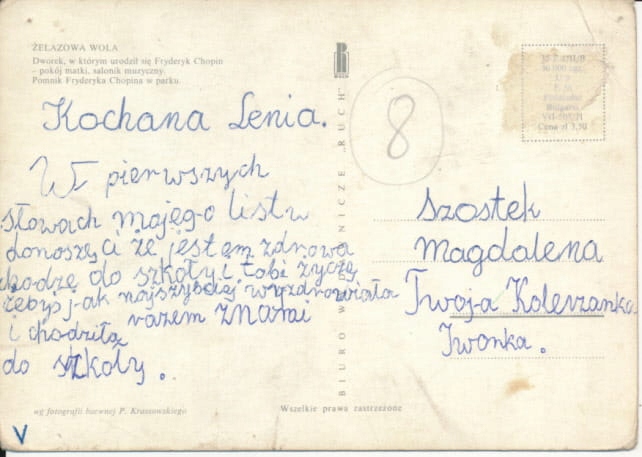 ŻELAZOWA WOLA
Dworek, w którym urodził się Fryderyk Chopin
– pokój matki, salonik muzyczny.
Pomnik Fryderyka Chopina w parku.
Kochana Lenia.
W pierwszych
słowach mojego listu
donoszę Ci że jestem zdrowa
chodzę do szkoły i tobi życzę
żebyś jak najszybciej wyzdrowiała
i chodziła razem znami
do szkoły.
8
BIURO WYDAWNICZE „RUCH”
Cena zł 3,50
Szostek
Magdalena
Twoja Koleżanka
Iwonka.
wg fotografii barwnej P. Krassowskiego
Wszelkie prawa zastrzeżone
V